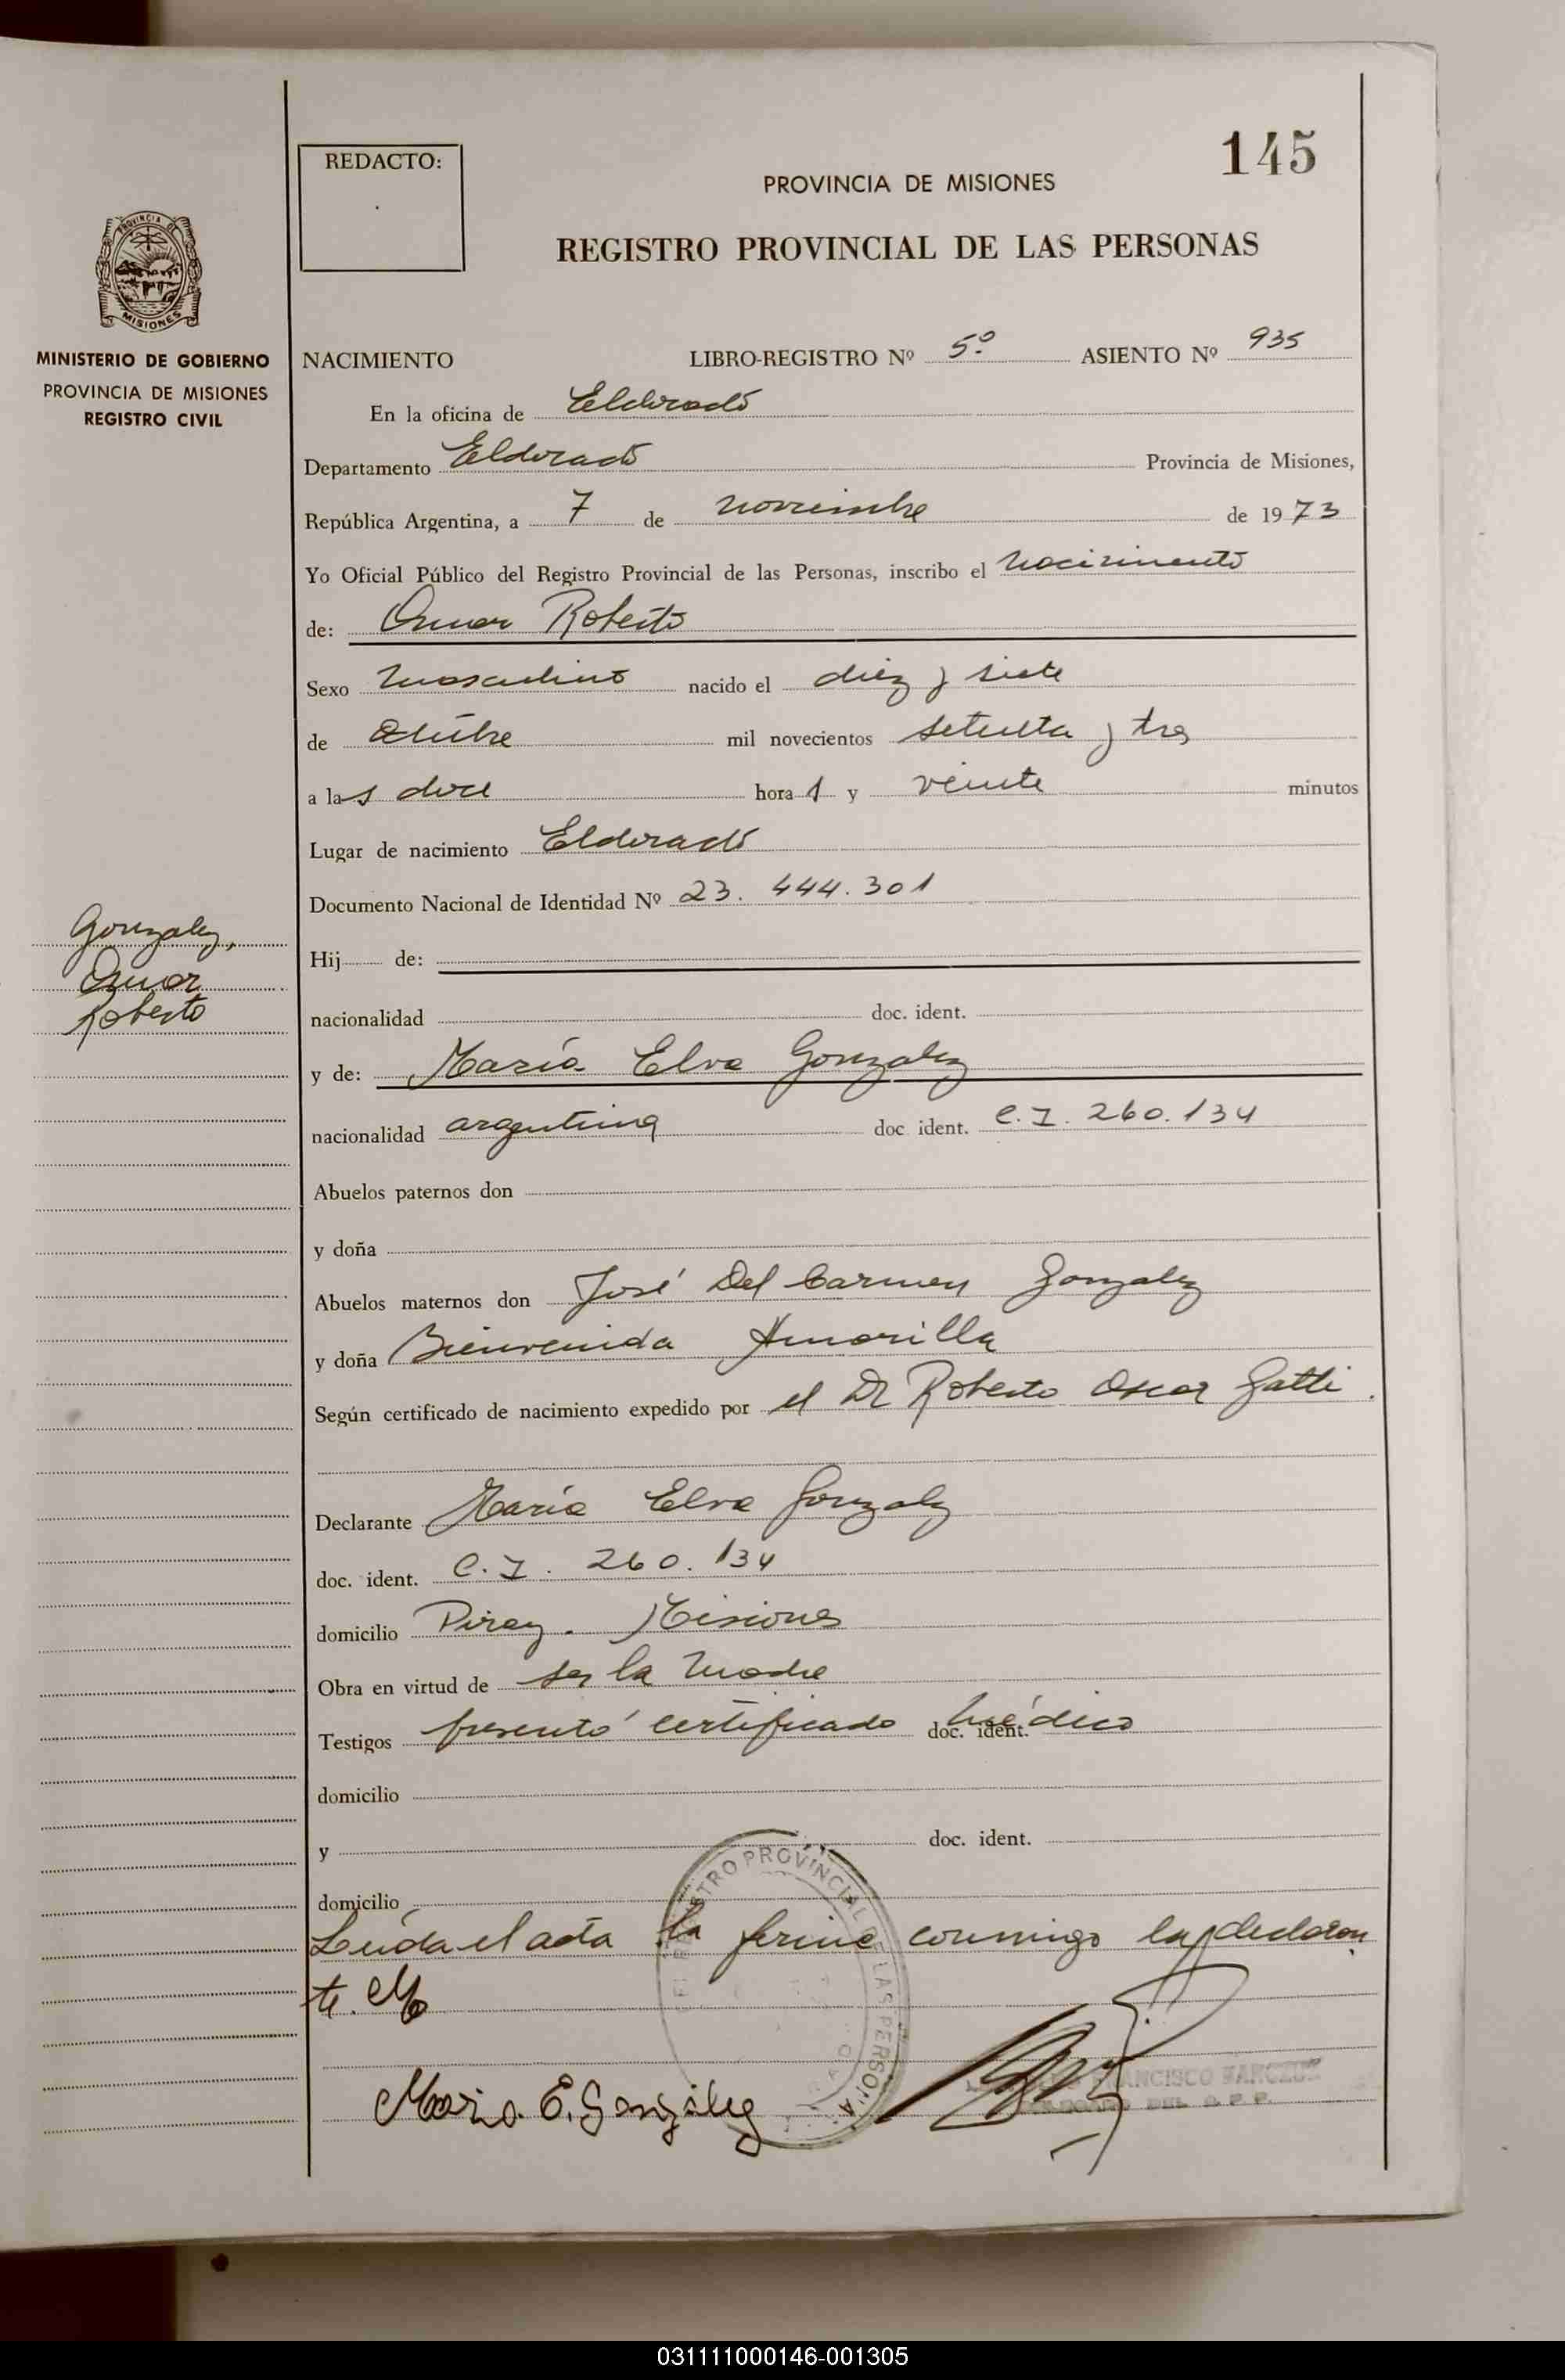 145
REDACTO:
PROVINCIA DE MISIONES
REGISTRO PROVINCIAL DE LAS PERSONAS
PROVINCIA DE
MISIONES
MINISTERIO DE GOBIERNO
PROVINCIA DE MISIONES
REGISTRO CIVIL
NACIMIENTO LIBRO-REGISTRO Nº 5º ASIENTO Nº 935
En la oficina de Eldorado
Departamento Eldorado Provincia de Misiones,
República Argentina, a 7 de noviembre de 1973
Yo Oficial Público del Registro Provincial de las Personas, inscribo el Nacimiento
de: Omar Roberto
Sexo masculino nacido el diez y siete
de Octubre mil novecientos setenta y tres
a las doce horas y veinte minutos
Lugar de nacimiento Eldorado
Documento Nacional de Identidad Nº 23.444.301
Gonzalez,
Omar
Roberto
Hij de:
nacionalidad doc. ident.
y de: María Elva Gonzalez
nacionalidad argentina doc ident. C.I. 260.134
Abuelos paternos don
y doña
Abuelos maternos don José Del Carmen Gonzalez
y doña Bienvenida Amarilla
Según certificado de nacimiento expedido por el Dr Roberto Oscar Gatti.
Declarante María Elva Gonzalez
doc. ident. C.I. 260.134
domicilio Piray. Misiones
Obra en virtud de ser la madre
Testigos presentó certificado doc. ident. médico
domicilio
y doc. ident.
domicilio
Leída el acta la firma conmigo la declaran
te.
REGISTRO PROVINCIAL DE LAS PERSONAS
Maria E. Gonzalez
FRANCISCO
031111000146-001305